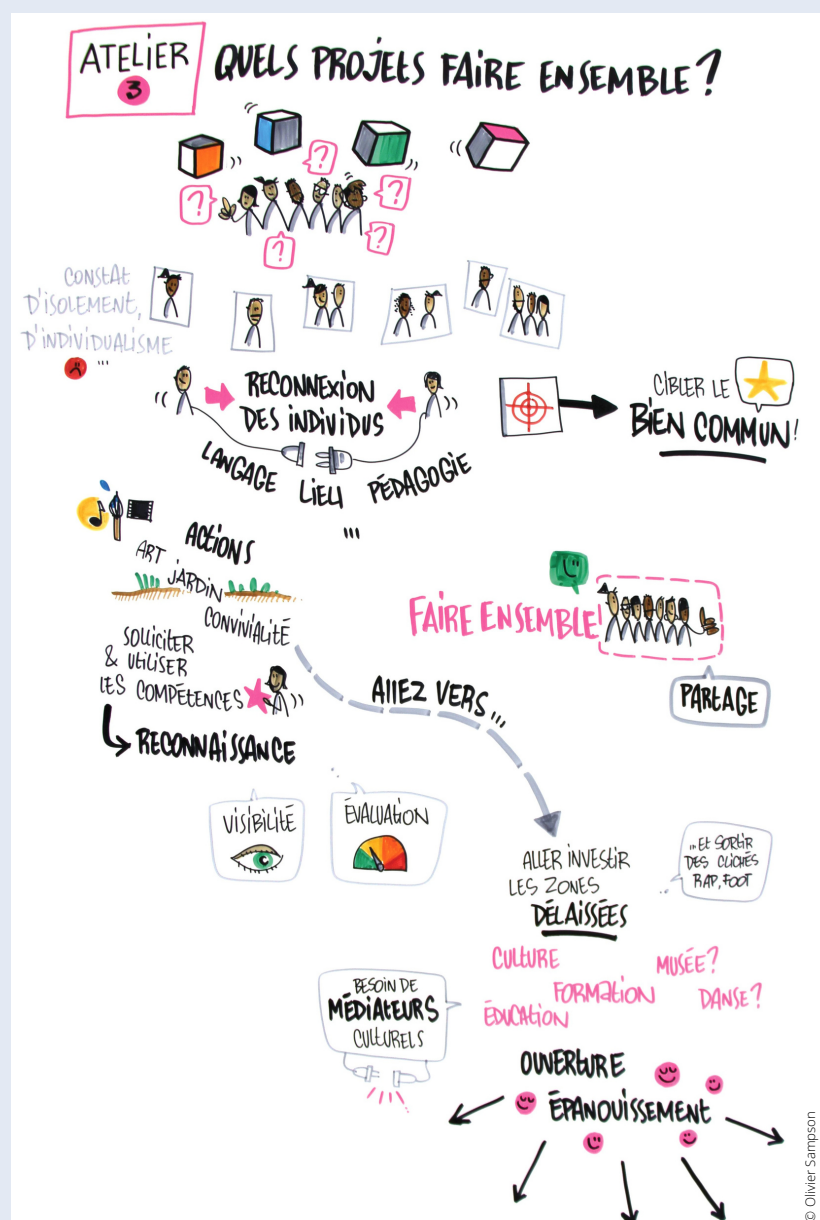 ATELIER
3
QUELS PROJETS FAIRE ENSEMBLE ?
?
?
?
?
?
CONSTAT
D'ISOLEMENT,
D'INDIVIDUALISME
...
RECONNEXION
DES INDIVIDUS
LANGAGE LIEU PÉDAGOGIE
...
CIBLER LE
BIEN COMMUN !
ACTIONS
ART
JARDIN
CONVIVIALITÉ
SOLLICITER
& UTILISER
LES COMPÉTENCES
RECONNAISSANCE
FAIRE ENSEMBLE !
PARTAGE
ALLEZ VERS...
VISIBILITÉ
ÉVALUATION
ALLER INVESTIR
LES ZONES
DÉLAISSÉES
... ET SORTIR
DES CLICHÉS
RAP, FOOT
CULTURE
MUSÉE ?
FORMATION
DANSE ?
ÉDUCATION
BESOIN DE
MÉDIATEURS
CULTURELS
OUVERTURE
ÉPANOUISSEMENT
© Olivier Sampson